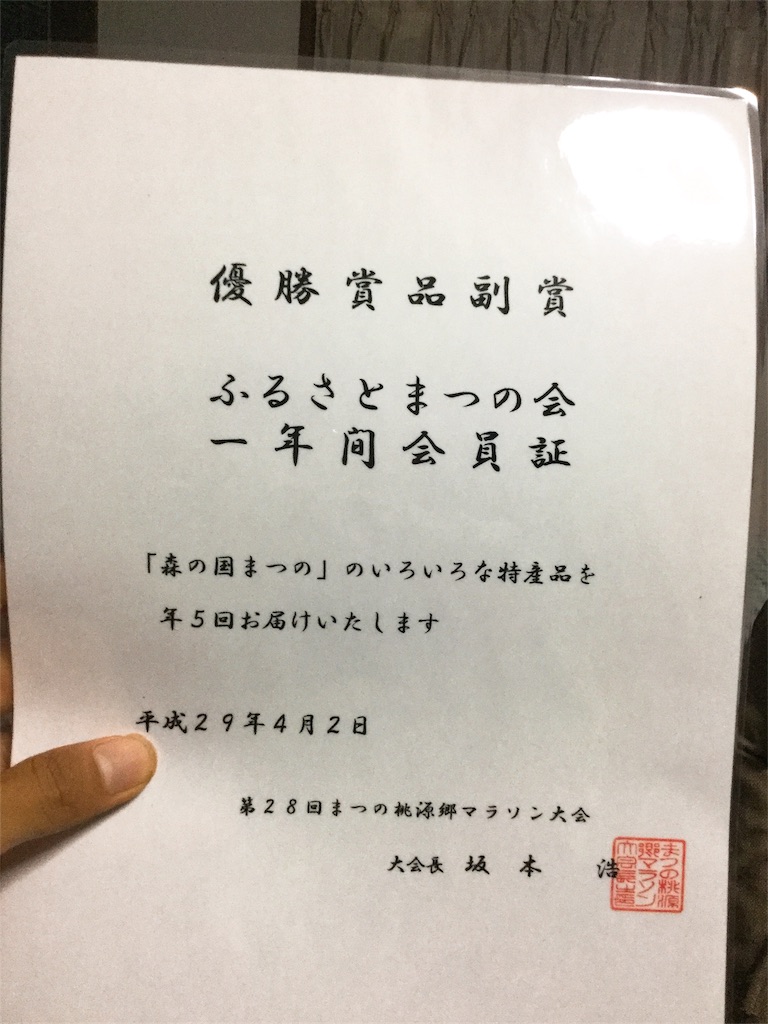 優勝賞品副賞
ふるさとまつの会
一年間会員証
「森の国まつの」のいろいろな特産品を
年5回お届けいたします
平成29年4月2日
第28回まつの桃源郷マラソン大会
大会長 坂本 浩
まつの桃源
郷マラソン